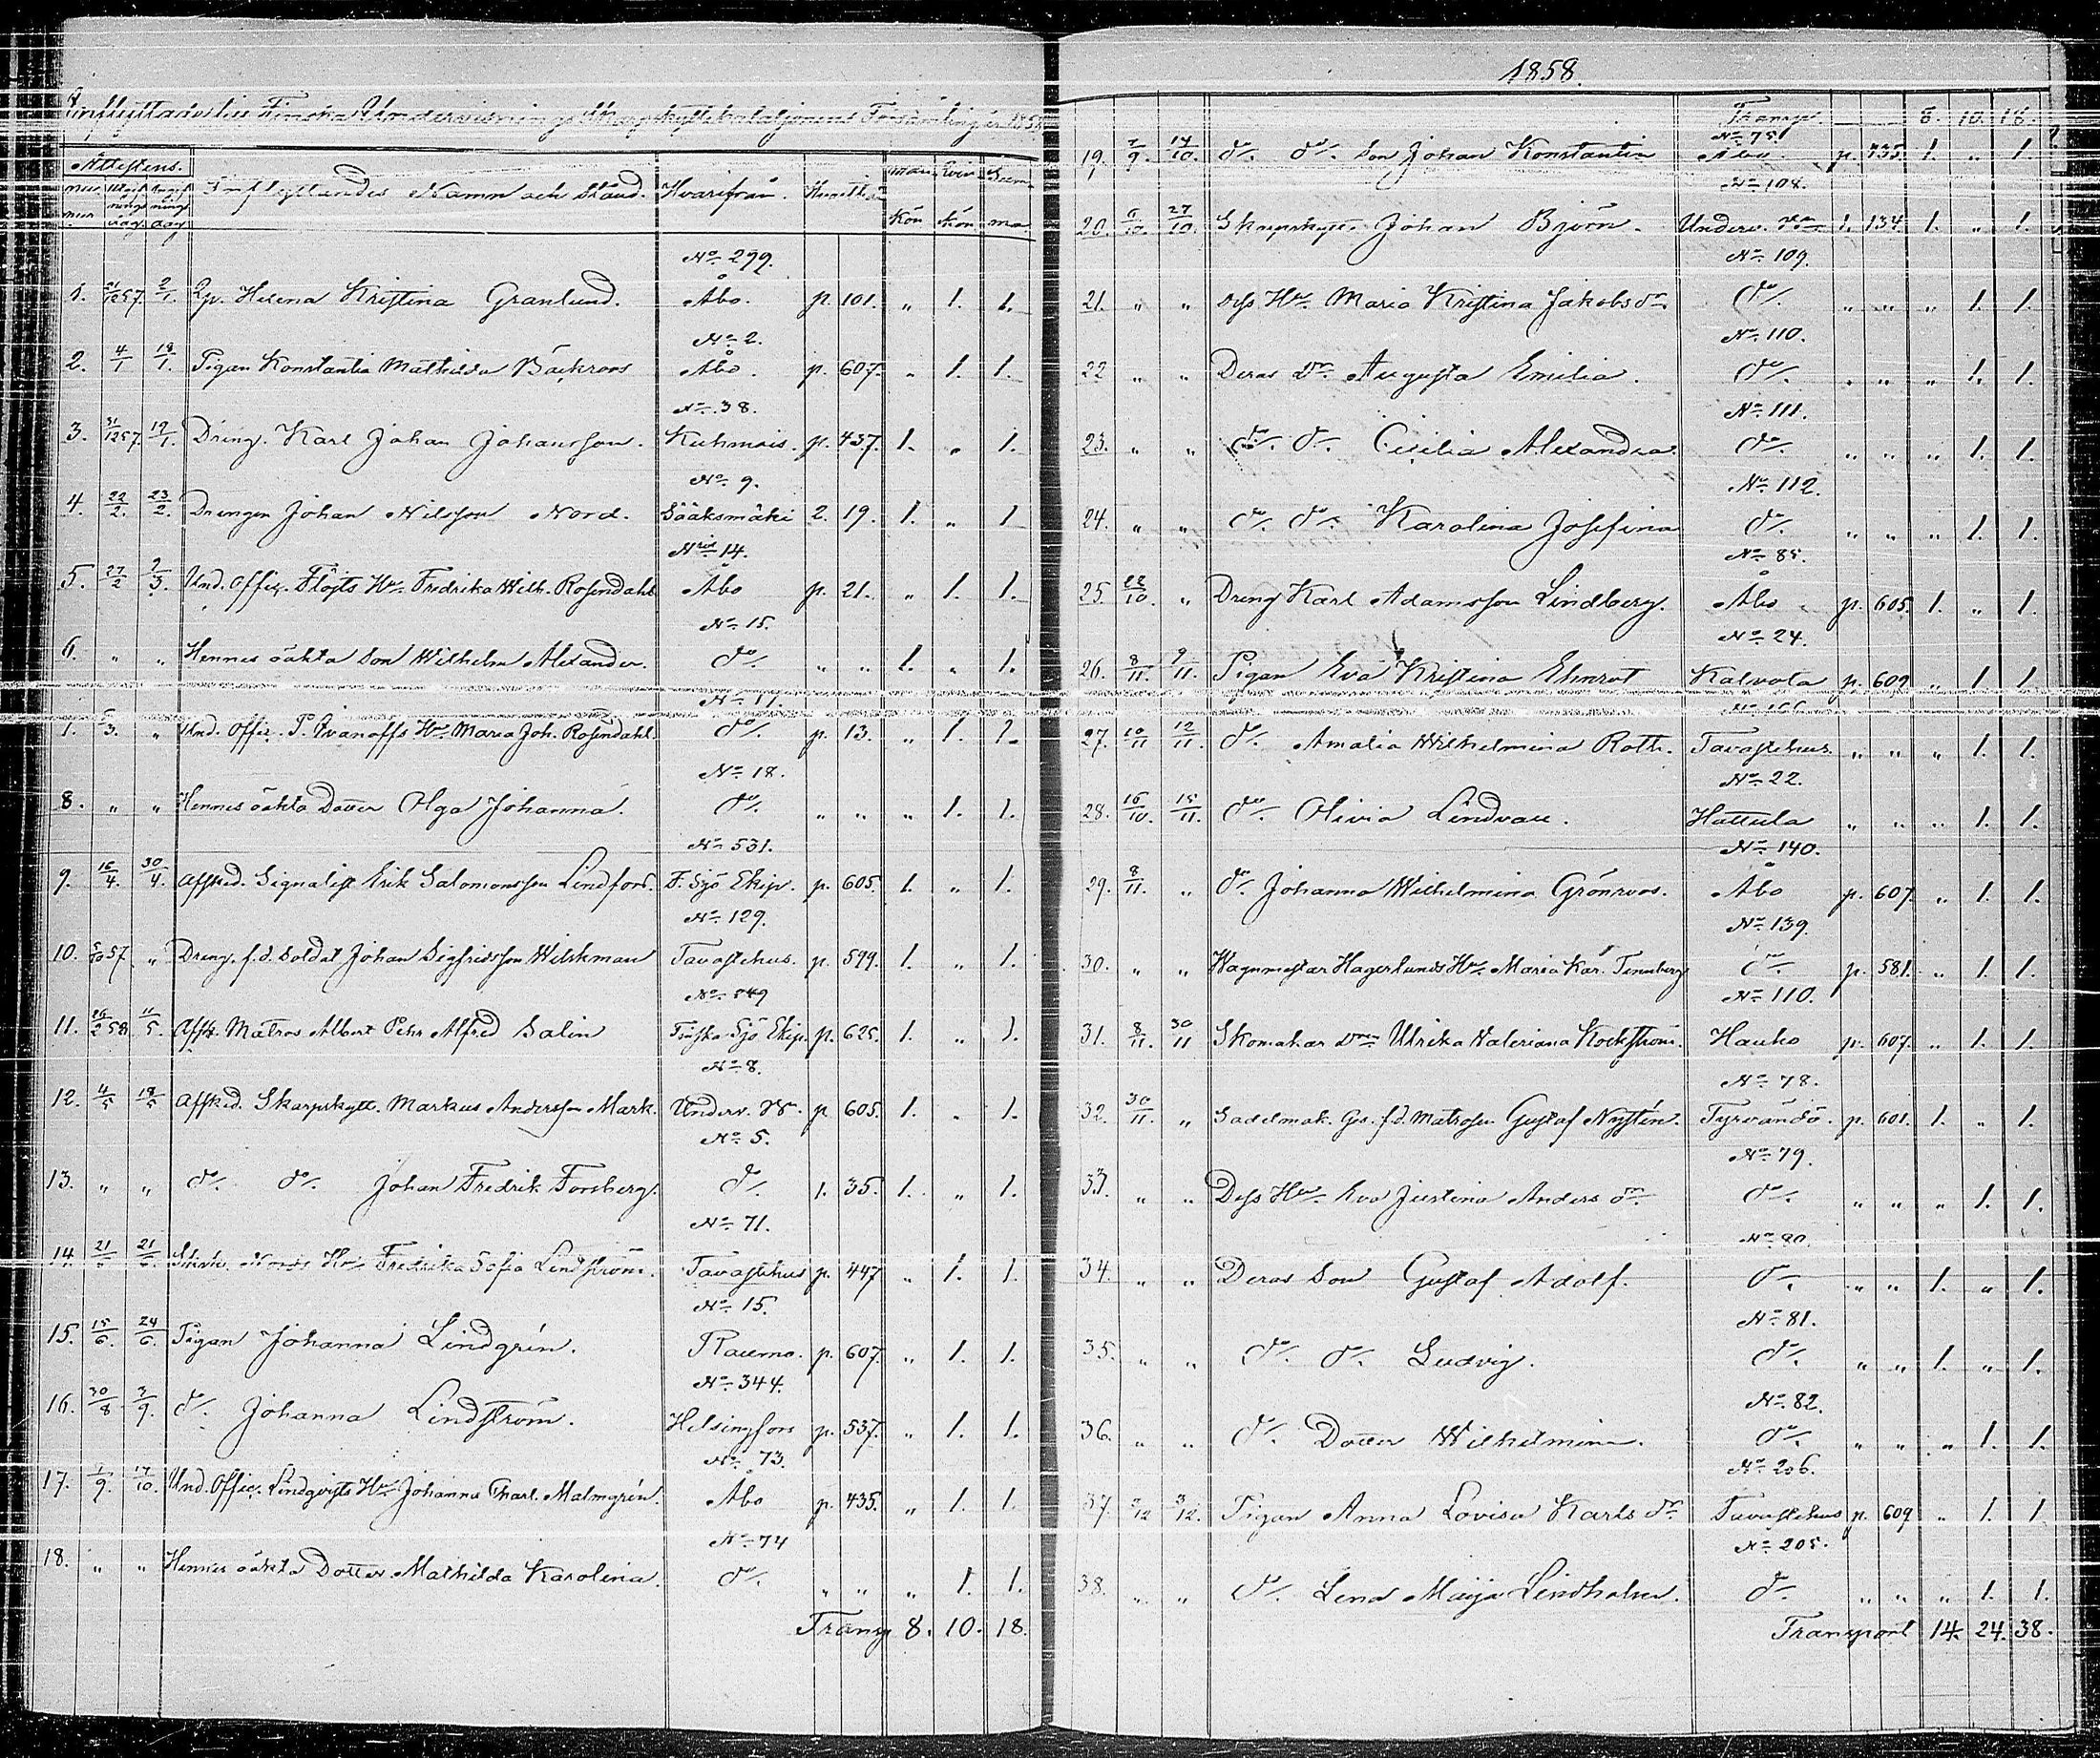 Inflyttade till Finska Undervisnings Skarpskyttebataljonens Församling år 1858
Attestens.
Inflyttandes Namn och Stånd. Hvarifrån. Hvarthän Man Kön Qvin Kön Summa
No 299.
1. 21/12 57. 2/1. Qp. Helena Kristina Granlund. Åbo. p. 101. " 1. 1.
No 2.
2. 4/1 18/1. Pigan Konstantia Mathilda Bäckroos Åbo. p. 607. " 1. 1.
No 38.
3. 31/12 57. 19/1. Dräng. Karl Johan Johansson. Kuhmois. p. 437. 1. " 1.
No 9.
4. 22/2. 23/2. Drängen Johan Nilsson Nord. Sääksmäki 2. 19. 1. " 1
No 14.
5. 27/2 2/3. Und. Offic. Flöjts Hu Fredrika Wilh. Rosendahl Åbo p. 21. " 1. 1.
No 15.
6. " " Hennes oäkta Son Wilhelm Alexander. do " " 1. " 1.
No 11.
Und. Offic. P. Ivanoffs Hu Maria Joh. Rosendahl do p. 13. " 1. 1.
No 18.
8. " " Hennes oäkta Dotter Olga Johanna. do " " " 1. 1.
No 531.
9. 16/4. 30/4. Afsked. Signalist Erik Salomonsson Lindfors. F. Sjö Ekip. p. 605. 1. " 1.
No 129.
10. 5/10 57. " Dräng. f.d. Soldat Johan Sigfridsson Wilskman Tavastehus. p. 599. 1. " 1.
No 549
11. 26/2 58. 11/5. Afsk. Matros Albert Pehr Alfred Salin Finska Sjö Ekip. p. 625. 1. " 1.
No 8.
12. 4/5 18/5 Afsked. Skarpskytt. Markus Andersson Mark. Underv. p 605. 1. " 1.
No 5.
13. " " do do Johan Fredrik Forsberg. do 1. 35. 1. " 1.
No 71.
14. 21 21 Hu Fredrika Sofia Lindström. Tavastehus p. 447 " 1. 1.
No 15.
15. 15/6. 24/6. Pigan Johanna Lindgrén. Raumo. p. 607. " 1. 1.
No 344.
16. 30/8 3/9. do Johanna Lindström. Helsingfors p. 537. " 1. 1.
No 73.
17. 1/9. 17/10. Und. Offic. Lindqvists Hu Johanna Charl. Malmgrén. Åbo p. 435. " 1. 1.
No 74
18. " " Hennes oäkta Dotter Mathilda Karolina. do " " " 1. 1.
Transp 8. 10. 18.
1858.
Transp. 8. 10. 18.
No 75.
19. 7/9. 17/10. do do Son Johan Konstantin Åbo. p. 435. 1. " 1.
No 108.
20. 6/10. 27/10. Skarpskytt. Johan Björn. Underv. 1. 134. 1. " 1.
No 109.
21. " " Dess Hu Maria Kristina Jakobsdr do " " " 1. 1.
No 110.
22 " " Deras dr Augusta Emilia. do " " " 1. 1.
No 111.
23. " " do do Cecilia Alexandra. do " " " 1. 1.
No 112.
24. " " do do Karolina Josefina do " " " 1. 1.
No 85.
25. 22/10. " Dräng Karl Adamsson Lindberg. Åbo p. 605. 1. " 1.
No 24.
26. 8/11. 9/11. Pigan Eva Kristina Ehnrot Kalvola p. 609 " 1. 1.
27. 10/11 12/11. do Amalia Wilhelmina Roth. Tavastehus. " " " 1. 1.
No 22.
28. 16/10. 15/11. do Olivia Lindvall. Hattula " " " 1. 1.
No 140.
29. 8/11. " do Johanna Wilhelmina Grönroos. Åbo p. 607. " 1. 1.
No 139.
30. " " Wagnmästar Hagerlunds Hu Maria Kar. Tennberg do p. 581. " 1. 1.
No 110.
31. 8/11. 30/11 Skomakar drn Ulrika Valeriana Kockström. Hauho p. 607. " 1. 1.
No 78.
32. 30/11. " Sadelmak. Ges. f.d. Matrosen Gustaf Nystén. Tyrvändö. p. 601. 1. " 1.
No 79.
33. " " Dess Hu Eva Justina Andersdr do " " " 1. 1.
No 80.
34. " " Deras Son Gustaf Adolf. do " " 1. " 1.
No 81.
35. " " do do Ludvig. do " " 1. " 1.
No 82.
36. " " do Dotter Wilhelmina. do " " " 1. 1.
No 206.
37. 2/12 3/12. Pigan Anna Lovisa Karlsdr Tavastehus p. 609 " 1. 1.
No 205.
38. " " do Lena Maija Lindholm. do " " " 1. 1.
Transport 14. 24. 38.